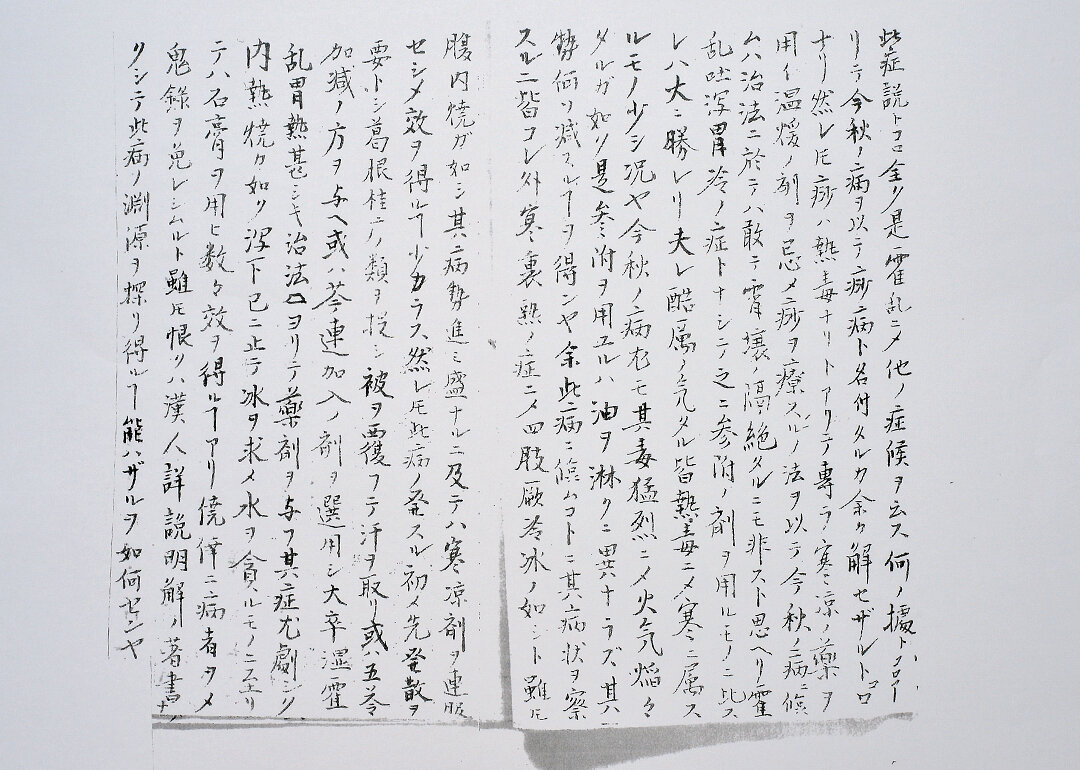 此症説トコロ全ク是霍乱ニ〆他ノ症候ヲ云ス何ノ據トコロ
リテ今秋ノ病ヲ以テ痧病ト名付タルカ余ク解セザルトコロ
ナリ然レ𪜈痧ハ熱毒ナリトアリテ專ラ寒ミ涼ノ藥ヲ
用イ温煖ノ剤ヲ忌メ痧ヲ療スルノ法ヲ以テ今秋ノ病ニ臨
ムハ治法ニ於テハ敢テ霄壤ノ隔絶タルニモ非スト思ヘリ霍
乱吐瀉胃冷ノ症トナシテ之ニ参附ノ剤ヲ用ルモノニ比ス
レハ大ニ勝レリ夫レ酷厲ノ気タル皆熱毒ニ〆寒ニ属ス
ルモノ少シ況ヤ今秋ノ病尤モ其毒猛烈ニ〆火気焔々
タルガ如ソ是参附ヲ用ユルハ油ヲ淋クニ異ナラズ其
勢何ソ減スルヿヲ得ンヤ余此病ニ臨ムコトニ其病状ヲ察
スルニ皆コレ外寒裏熱ノ症ニ〆四肢厥冷氷ノ如シト雖𪜈
腹内焼ガ如シ其病勢進ミ盛ナルニ及テハ寒凉剤ヲ連服
セシメ效ヲ得ルヿ少カラス然レ𪜈此病ノ発スル初メ先発散ヲ
要トシ葛根桂ニノ類ヲ投シ被ヲ西復フテ汗ヲ取リ或ハ五苓
加減ノ方ヲ与ヘ或ハ芩連加入ノ剤ヲ選用シ大卒湿霍
乱胃熱甚シキ治法ヨリテ藥剤ヲ与フ其症尤劇シク
内熱焼カ如ク瀉下已ニ止テ氷ヲ求メ水ヲ貪ルモノニ至リ
テハ石膏ヲ用ヒ数々效ヲ得ルヿアリ僥倖ニ病者ヲメ
鬼錄ヲ免レシムルト雖𪜈恨クハ漢人詳説明解ノ著書ナ
クシテ此病ノ淵源ヲ探リ得ルヿ能ハザルヲ如何センヤ